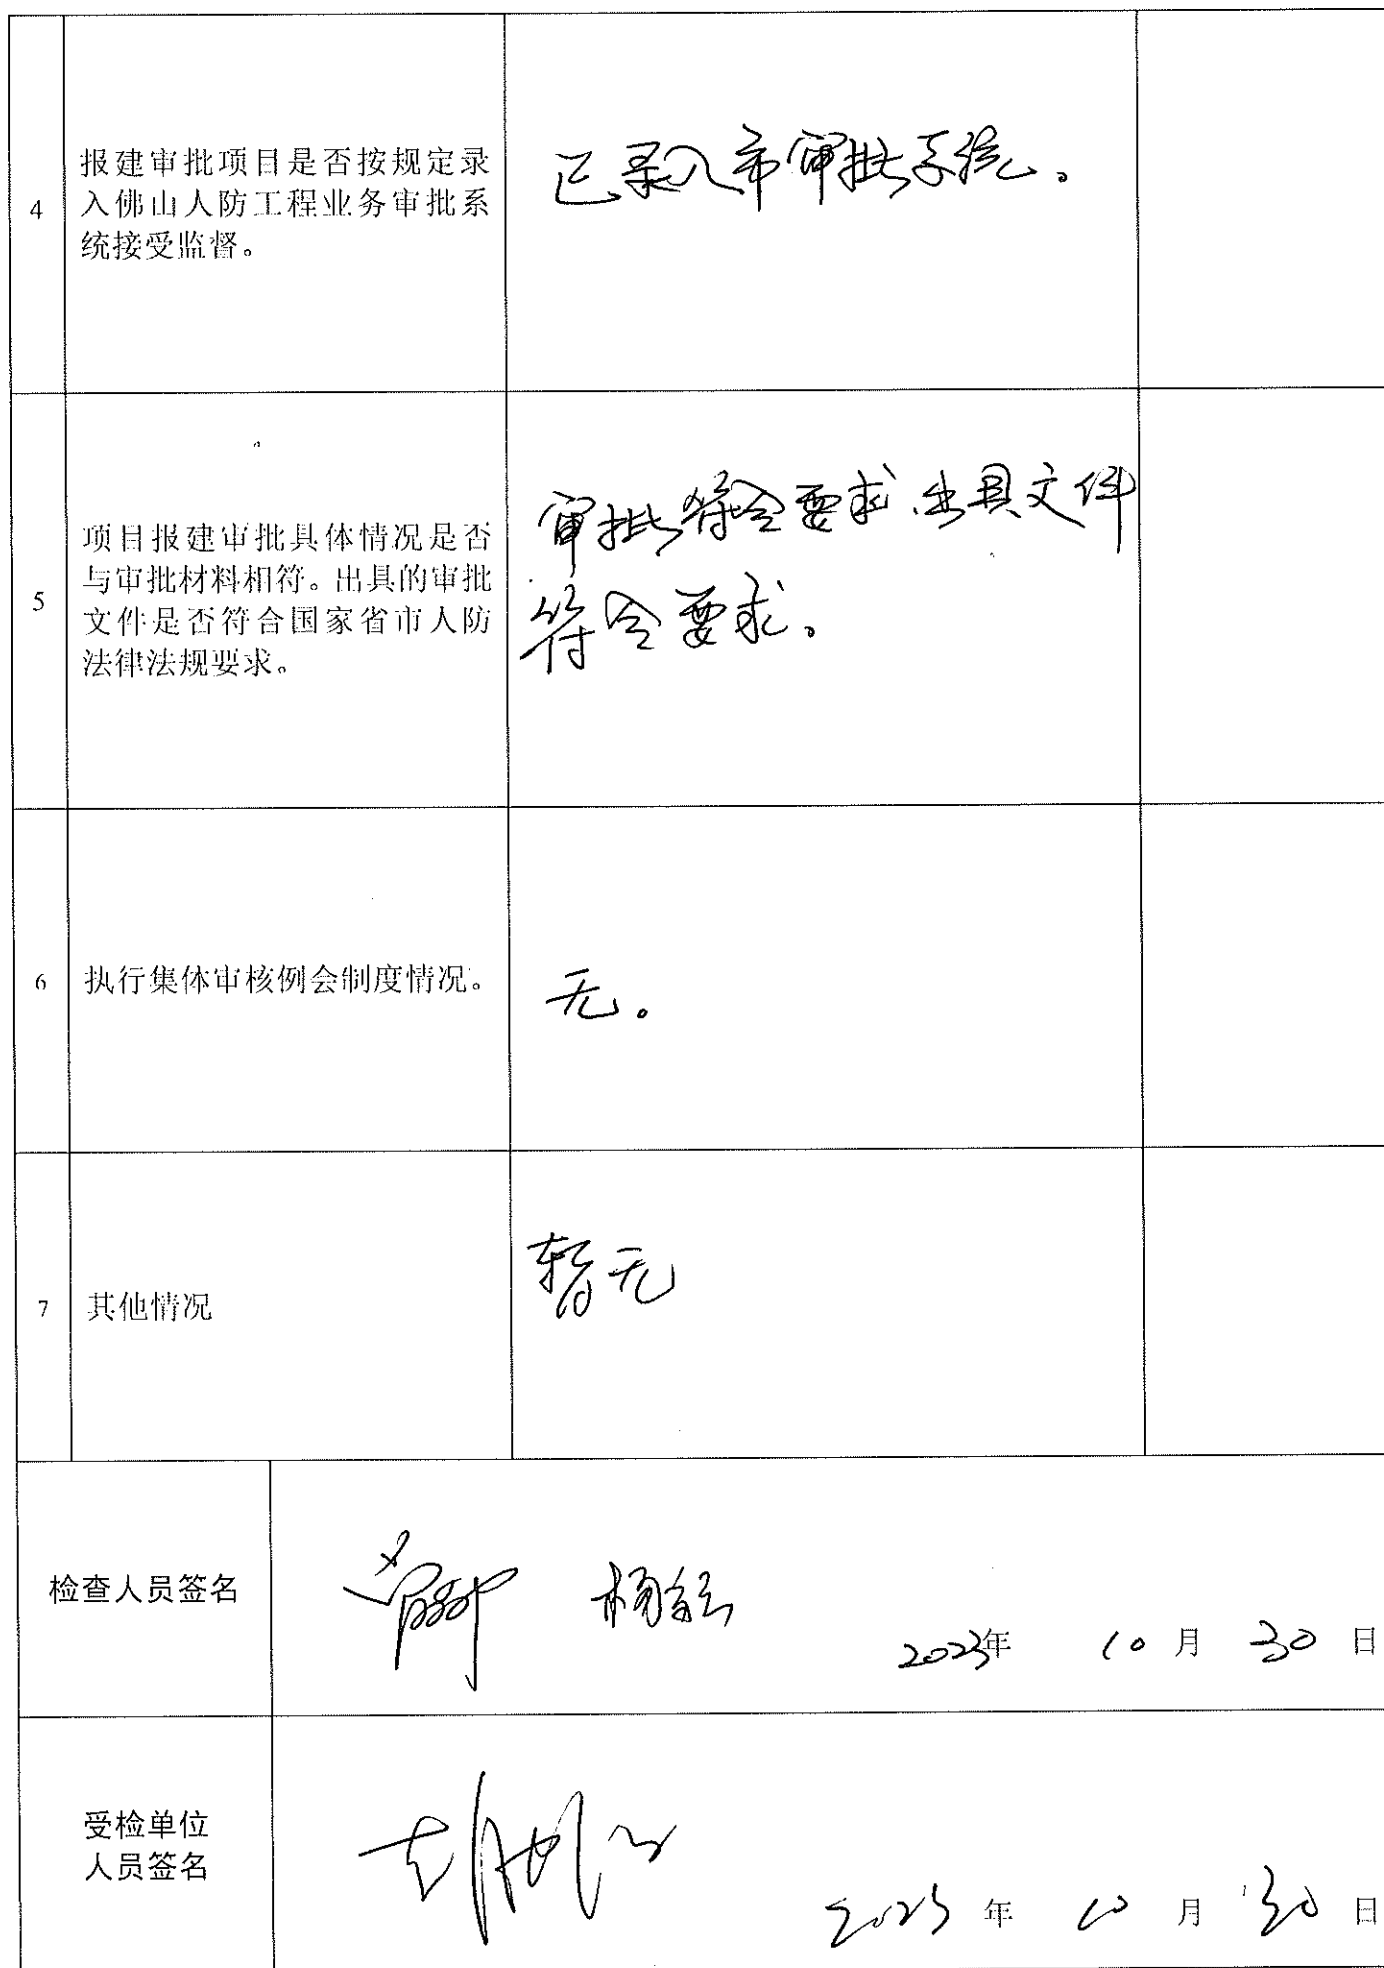 4
报建审批项目是否按规定录
入佛山人防工程业务审批系
统接受监督。
已录入市审批系统。
5
项目报建审批具体情况是否
与审批材料相符。出具的审批
文件是否符合国家省市人防
法律法规要求。
审批符合要求,出具文件
符合要求。
6
执行集体审核例会制度情况。
无。
7
其他情况
暂无
检查人员签名
2023年 10 月 30 日
受检单位
人员签名
2023 年 10 月 30 日